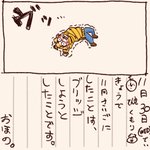 グッ…
11月30日
くもり
きょうで
11月さいごに
したことは、
ブリッジ
しようと
したことです。
おほの。